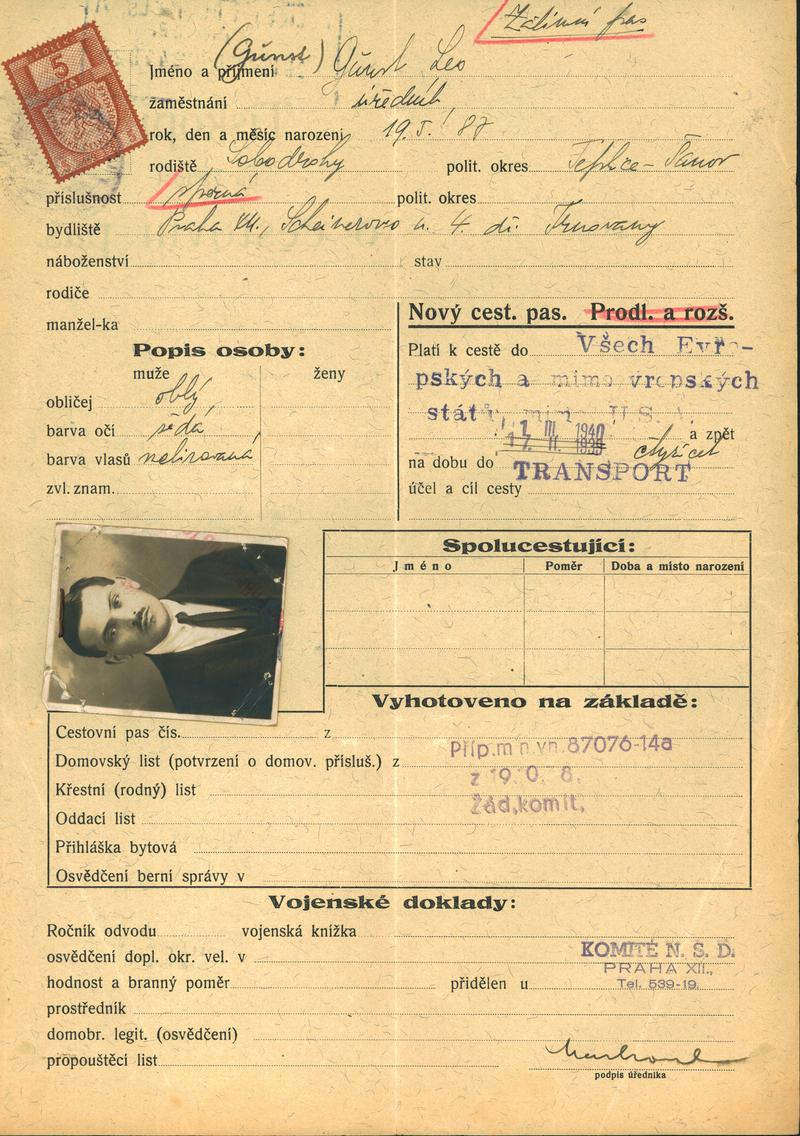 Zatimní pas
5
(Günst)
Jméno a příjmení Günst Leo
zaměstnání úředník
rok, den a měsíc narození 19. 87
rodiště polit. okres Teplice-Šanov
příslušnost sporná polit. okres
bydliště Praha 4.
náboženství stav
rodiče
manžel-ka
Nový cest. pas. Prodl. a rozš.
Popis osoby:
muže ženy
obličej oblý
barva očí šedá
barva vlasů
zvl. znam.
Platí k cestě do Všech Evro-
pských a mimo vropských
států mimo U.S.A.
1 III. 1940 a zpět
na dobu do
TRANSPORT
účel a cíl cesty
Spolucestující:
Jméno Poměr Doba a místo narození
Vyhotoveno na základě:
Cestovní pas čís. z
Domovský list (potvrzení o domov. přísluš.) z
Příp.m n.vn.87076-14a
z 19.0.8.
Žád.komit.
Křestní (rodný) list
Oddací list
Přihláška bytová
Osvědčení berní správy v
Vojenské doklady:
Ročník odvodu vojenská knížka
osvědčení dopl. okr. vel. v
hodnost a branný poměr přidělen u
KOMITÉ N. S. D.
PRAHA XII.,
Tel. 539-19.
prostředník
domobr. legit. (osvědčení)
propouštěcí list
podpis úředníka